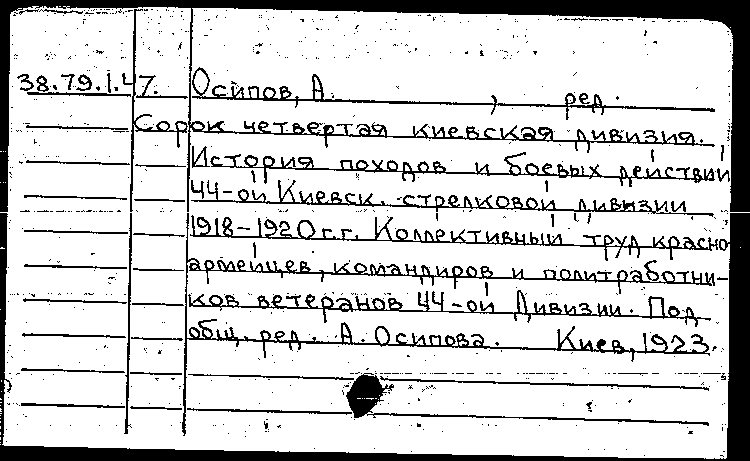 38.79.1.47. Осипов, А. , ред.
Сорок четвертая киевская дивизия.
История походов и боевых действий
44-ой Киевск. стрелковой дивизии
1918-1920 г.г. Коллективный труд красно-
армейцев, командиров и политработни-
ков ветеранов 44-ой Дивизии. Под
общ. ред. А. Осипова. Киев, 1923.